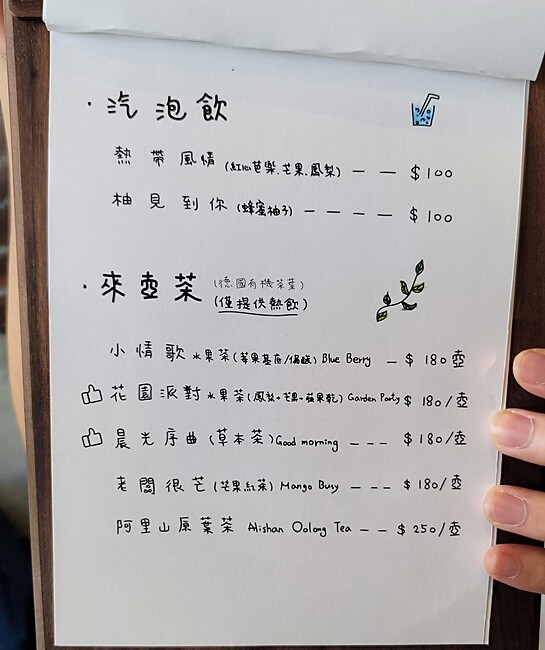 · 汽泡飲
熱帶風情 (紅心芭樂.芒果.鳳梨) — — $100
柚見到你 (蜂蜜柚子) — — — — $100
· 來壺茶 (德國有機茶葉)
(僅提供熱飲)
小情歌 水果茶(莓果基底/偏酸) Blue Berry — $180壺
花園派對 水果茶(鳳梨+芒果+蘋果乾) Garden Party $180/壺
晨光序曲 (草本茶) Good morning --- $180/壺
老闆很芒 (芒果紅茶) Mango Busy --- $180/壺
阿里山原葉茶 Alishan Oolong Tea -- $250/壺